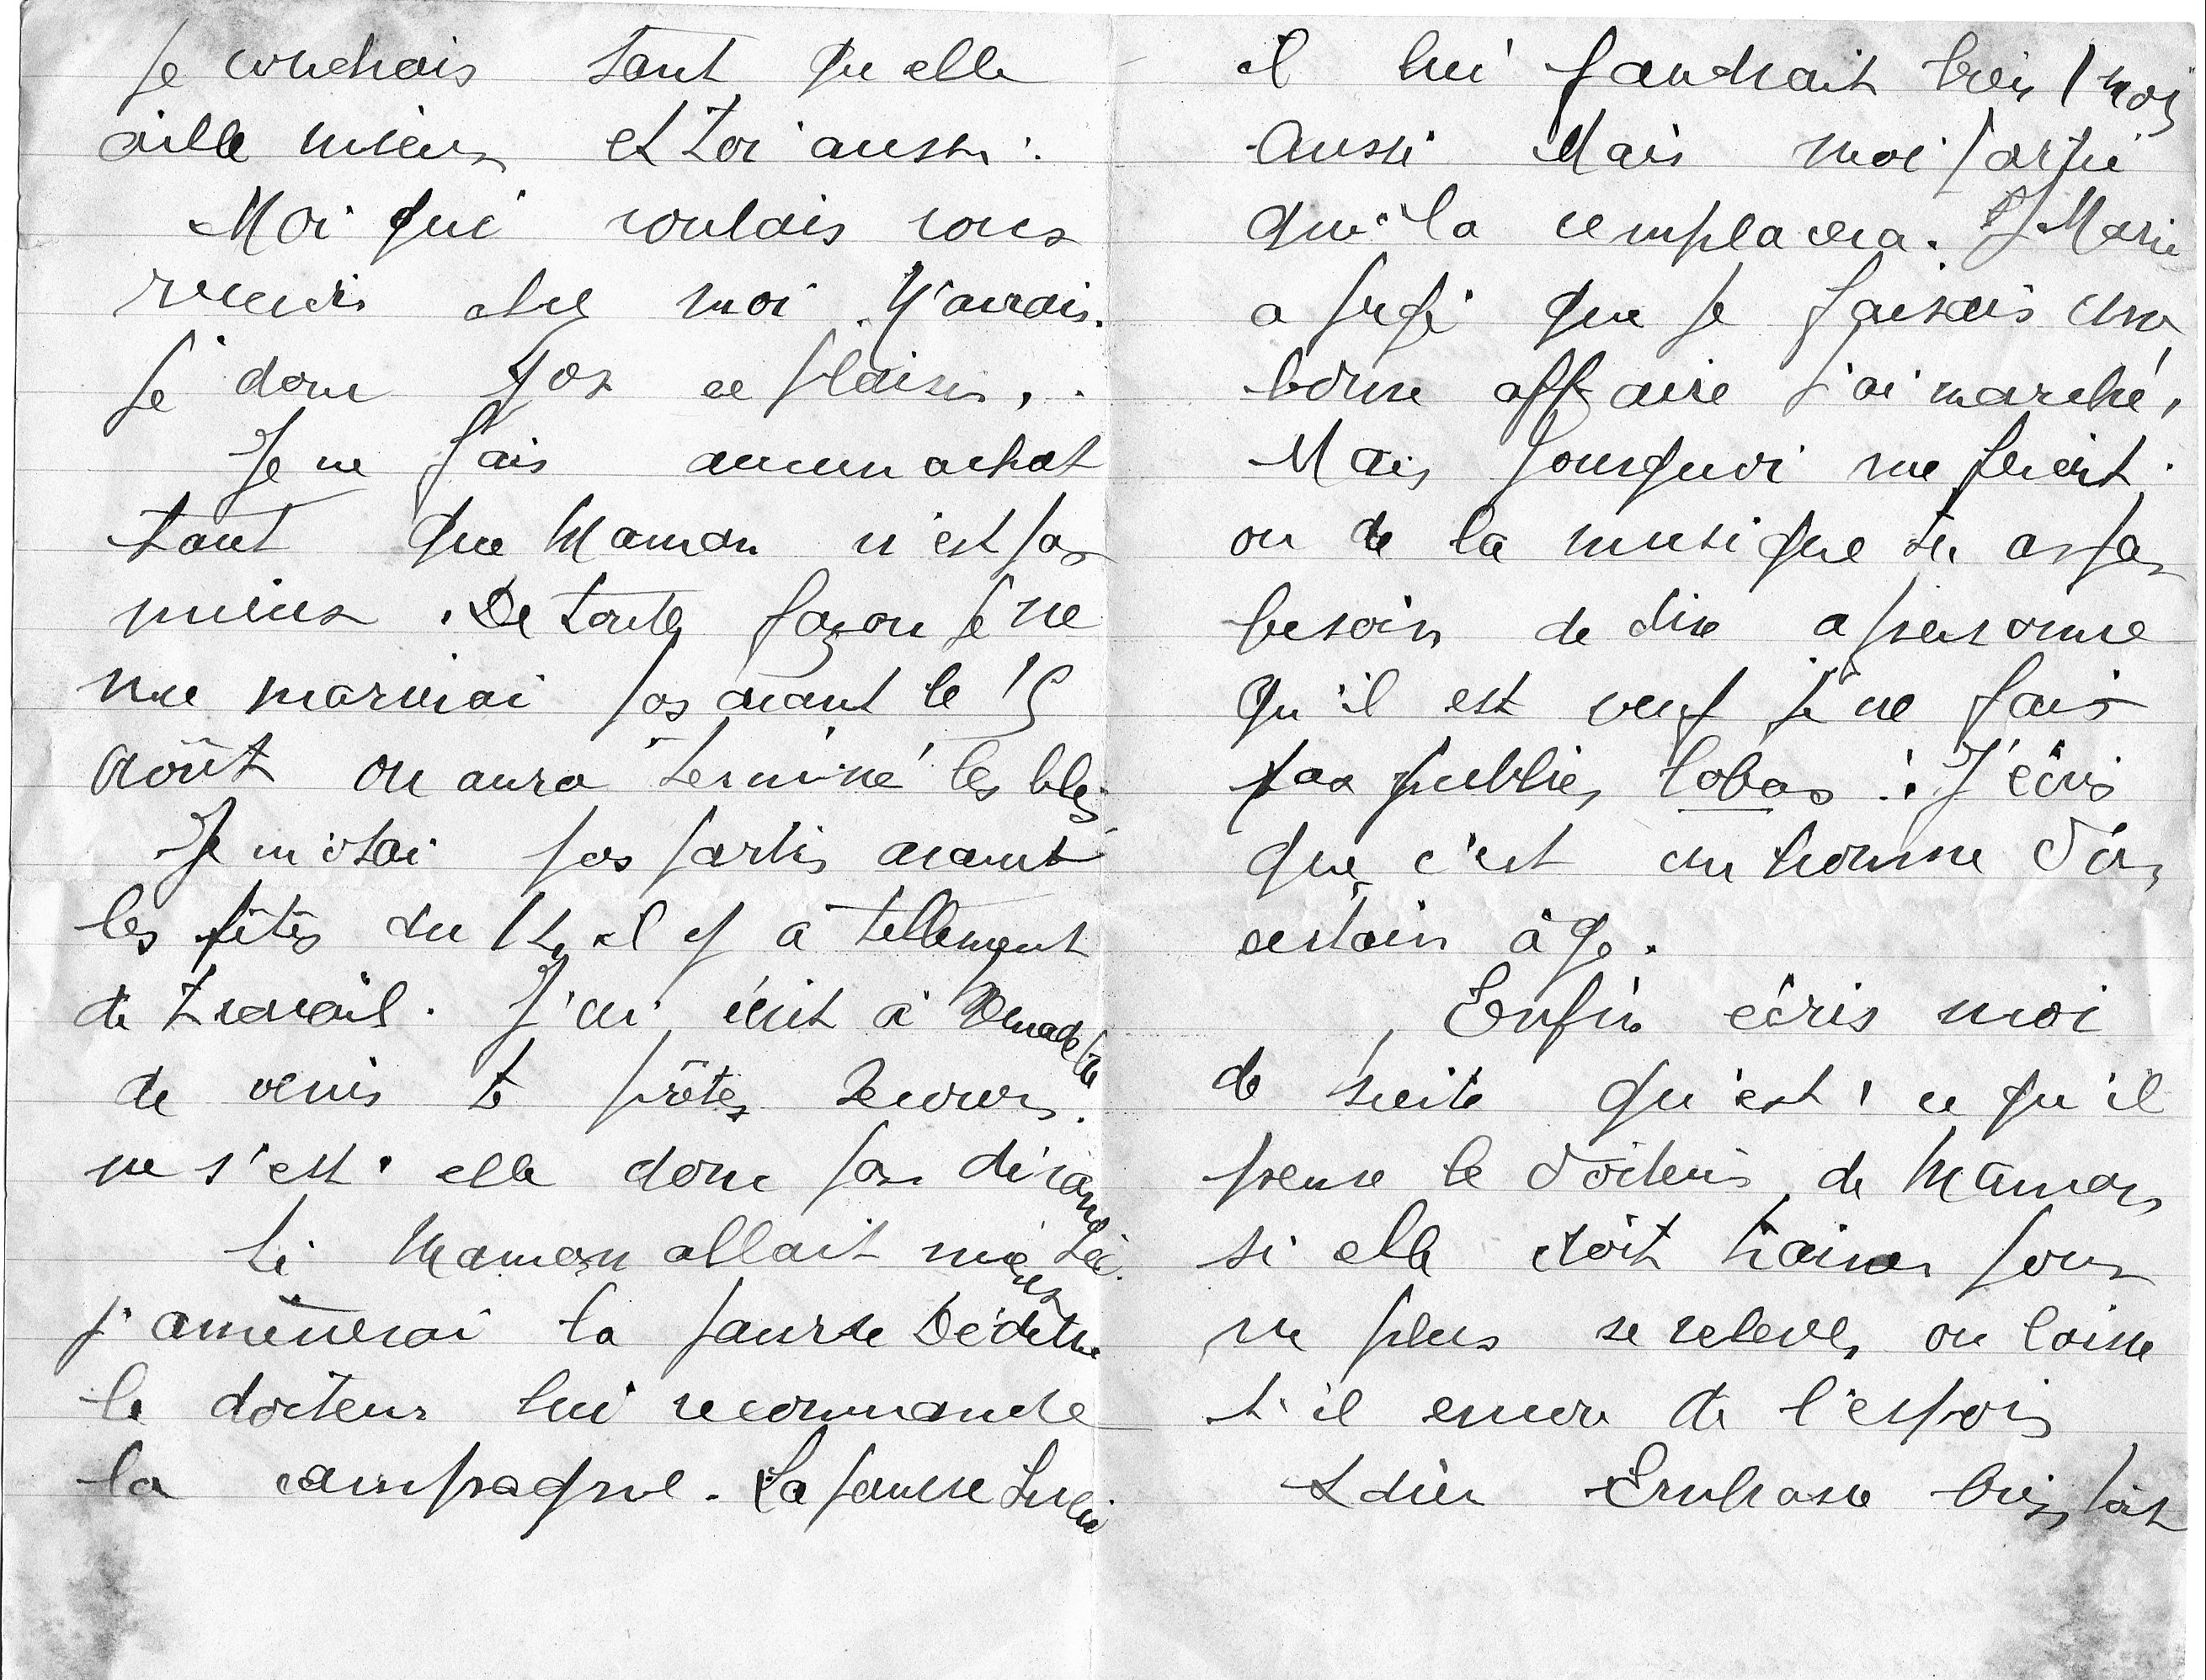 Je voudrais tant qu elle
aille mieux et toi aussi.
Moi qui voulais vous
revevoir chez moi. N'aurais.
je donc pas ce plaisir..
Je ne fais aucun achat
tant que Maman n'est pas
mieux. De toutes façon je ne
me marierai pas avant le 15
août on aura terminé les blés
Je m'oserai pas partir avant
les fêtes du 14 il y à tellement
de travail. J'ai écrit à
de venir te prêter secours.
ne s'est. elle donc pas dérangée.
Si Maman allait mieux
j'amènerai la pauvre Dédette
le docteur lui recommande
la campagne. La pauvre Lucie
il lui faudrait bien 1 mois
aussi Mais moi partie
qui la remplacera. Si Marie
a jugé que je faisais une
bonne affaire j'ai marché,
Mais pourquoi me
ou de la musique tu as pas
besoin de dire a personne
Qu'il est veuf je ne fais
pas publier labas: J'écris
que c'est un homme d'un
certain âge.
Enfin écris moi
de suite qu'est. ce qu'il
pense le docteur de Maman
si elle doit trainer pour
ne plus se relever ou laisse
t'il encore de l'espoir
Adieu Embrasse bien fort